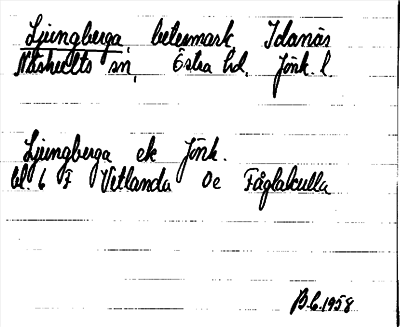 Ljungberga, betesmark, Idanäs
Näshults sn, Östra hd, Jönk. l
Ljungberga ek Jönk.
bl. 6 F Vetlanda Oe Fåglakulla
B.L. 1958